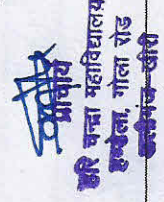 प्राचार्य
हरि चन्द्रा महाविद्यालय
गोला रोड
अलीगंज-खीरी